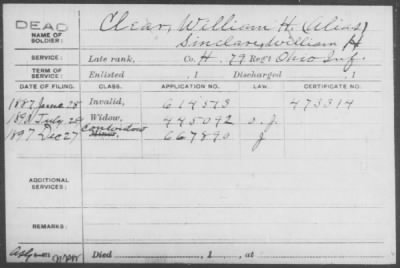 DEAD Clear, William H. (Alias)
NAME OF SOLDIER: Sinclare, William H
SERVICE: Late rank, Co. H. 79 Reg't Ohio Inf.
TERM OF SERVICE: Enlisted , 1 Discharged , 1
DATE OF FILING. CLASS. APPLICATION NO. LAW. CERTIFICATE NO.
1887 June 28 Invalid, 614573 473314
1890 July 28 Widow, 445092 o.j.
1897 Dec 27 Contwidow Minor, 667890 J
ADDITIONAL SERVICES:
REMARKS:
Died , 1 , at